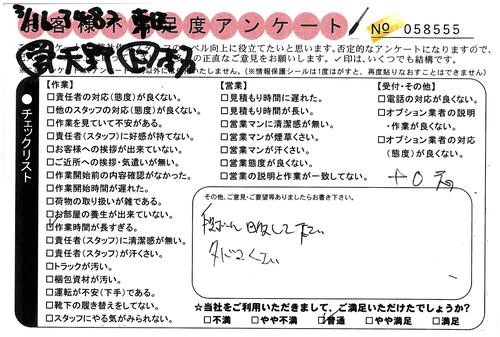 お客様不満足度アンケート
№ 058555
のレベル向上に役立てたいと思います。否定的なアンケートになりますので、
の正直なご意見をお願いします。✓印は、いくつでも結構です。
以外には いたしません。(※情報保護シールは1度はがすと、再度貼りなおすことはできません)
チェックリスト
【作業】
□責任者の対応(態度)が良くない。
□他のスタッフの対応(態度)が良くない。
□作業を見ていて不安がある。
□責任者(スタッフ)に好感が持てない。
□お客様への挨拶が出来ていない。
□ご近所への挨拶・気遣いが無い。
□作業開始前の内容確認がなかった。
□作業開始時間が遅れた。
□荷物の取り扱いが雑である。
□お部屋の養生が出来ていない。
□作業時間が長すぎる。
□責任者(スタッフ)に清潔感が無い。
□責任者(スタッフ)が汗くさい。
□トラックが汚い。
□梱包資材が汚い。
□運転が不安(下手)である。
□靴下の履き替えをしてない。
□スタッフにやる気がみられない。
【営業】
□見積もり時間に遅れた。
□見積もり時間が長い。
□営業マンに清潔感が無い。
□営業マンが煙草くさい。
□営業マンが汗くさい。
□営業態度が良くない。
□営業の説明と作業が一致してない。
【受付・その他】
□電話の対応が良くない。
□オプション業者の説明
・作業が良くない。
□オプション業者の対応
(態度)が良くない。
その他、ご意見・ご要望等ありましたらお書き下さい。
☆当社をご利用いただきまして、ご満足いただけたでしょうか?
□不満 □やや不満 □普通 □やや満足 □満足